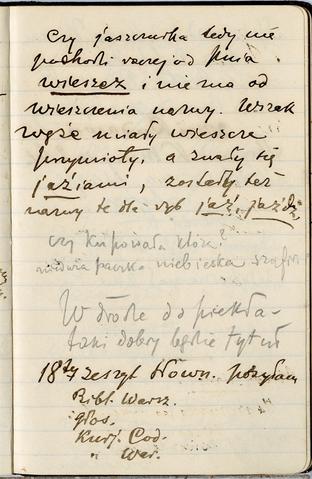 Czy jaszczurka tedy nie
pochodzi raczej od pnia
wieszcz i nie ma od
wieszczenia nazwy. Wszak
węże miały wieszcze
przymioty, a zwały się
jaźiami, zostały też
nazwy te dla ryb jaź, jaźdź
czy kupowała które?
paczka niebieska
W drodze do piekła –
taki dobry będzie tytuł
18ty zeszyt słown. posyłam
Bibl. Warsz.
Głos.
Kurj. Cod.
" War.